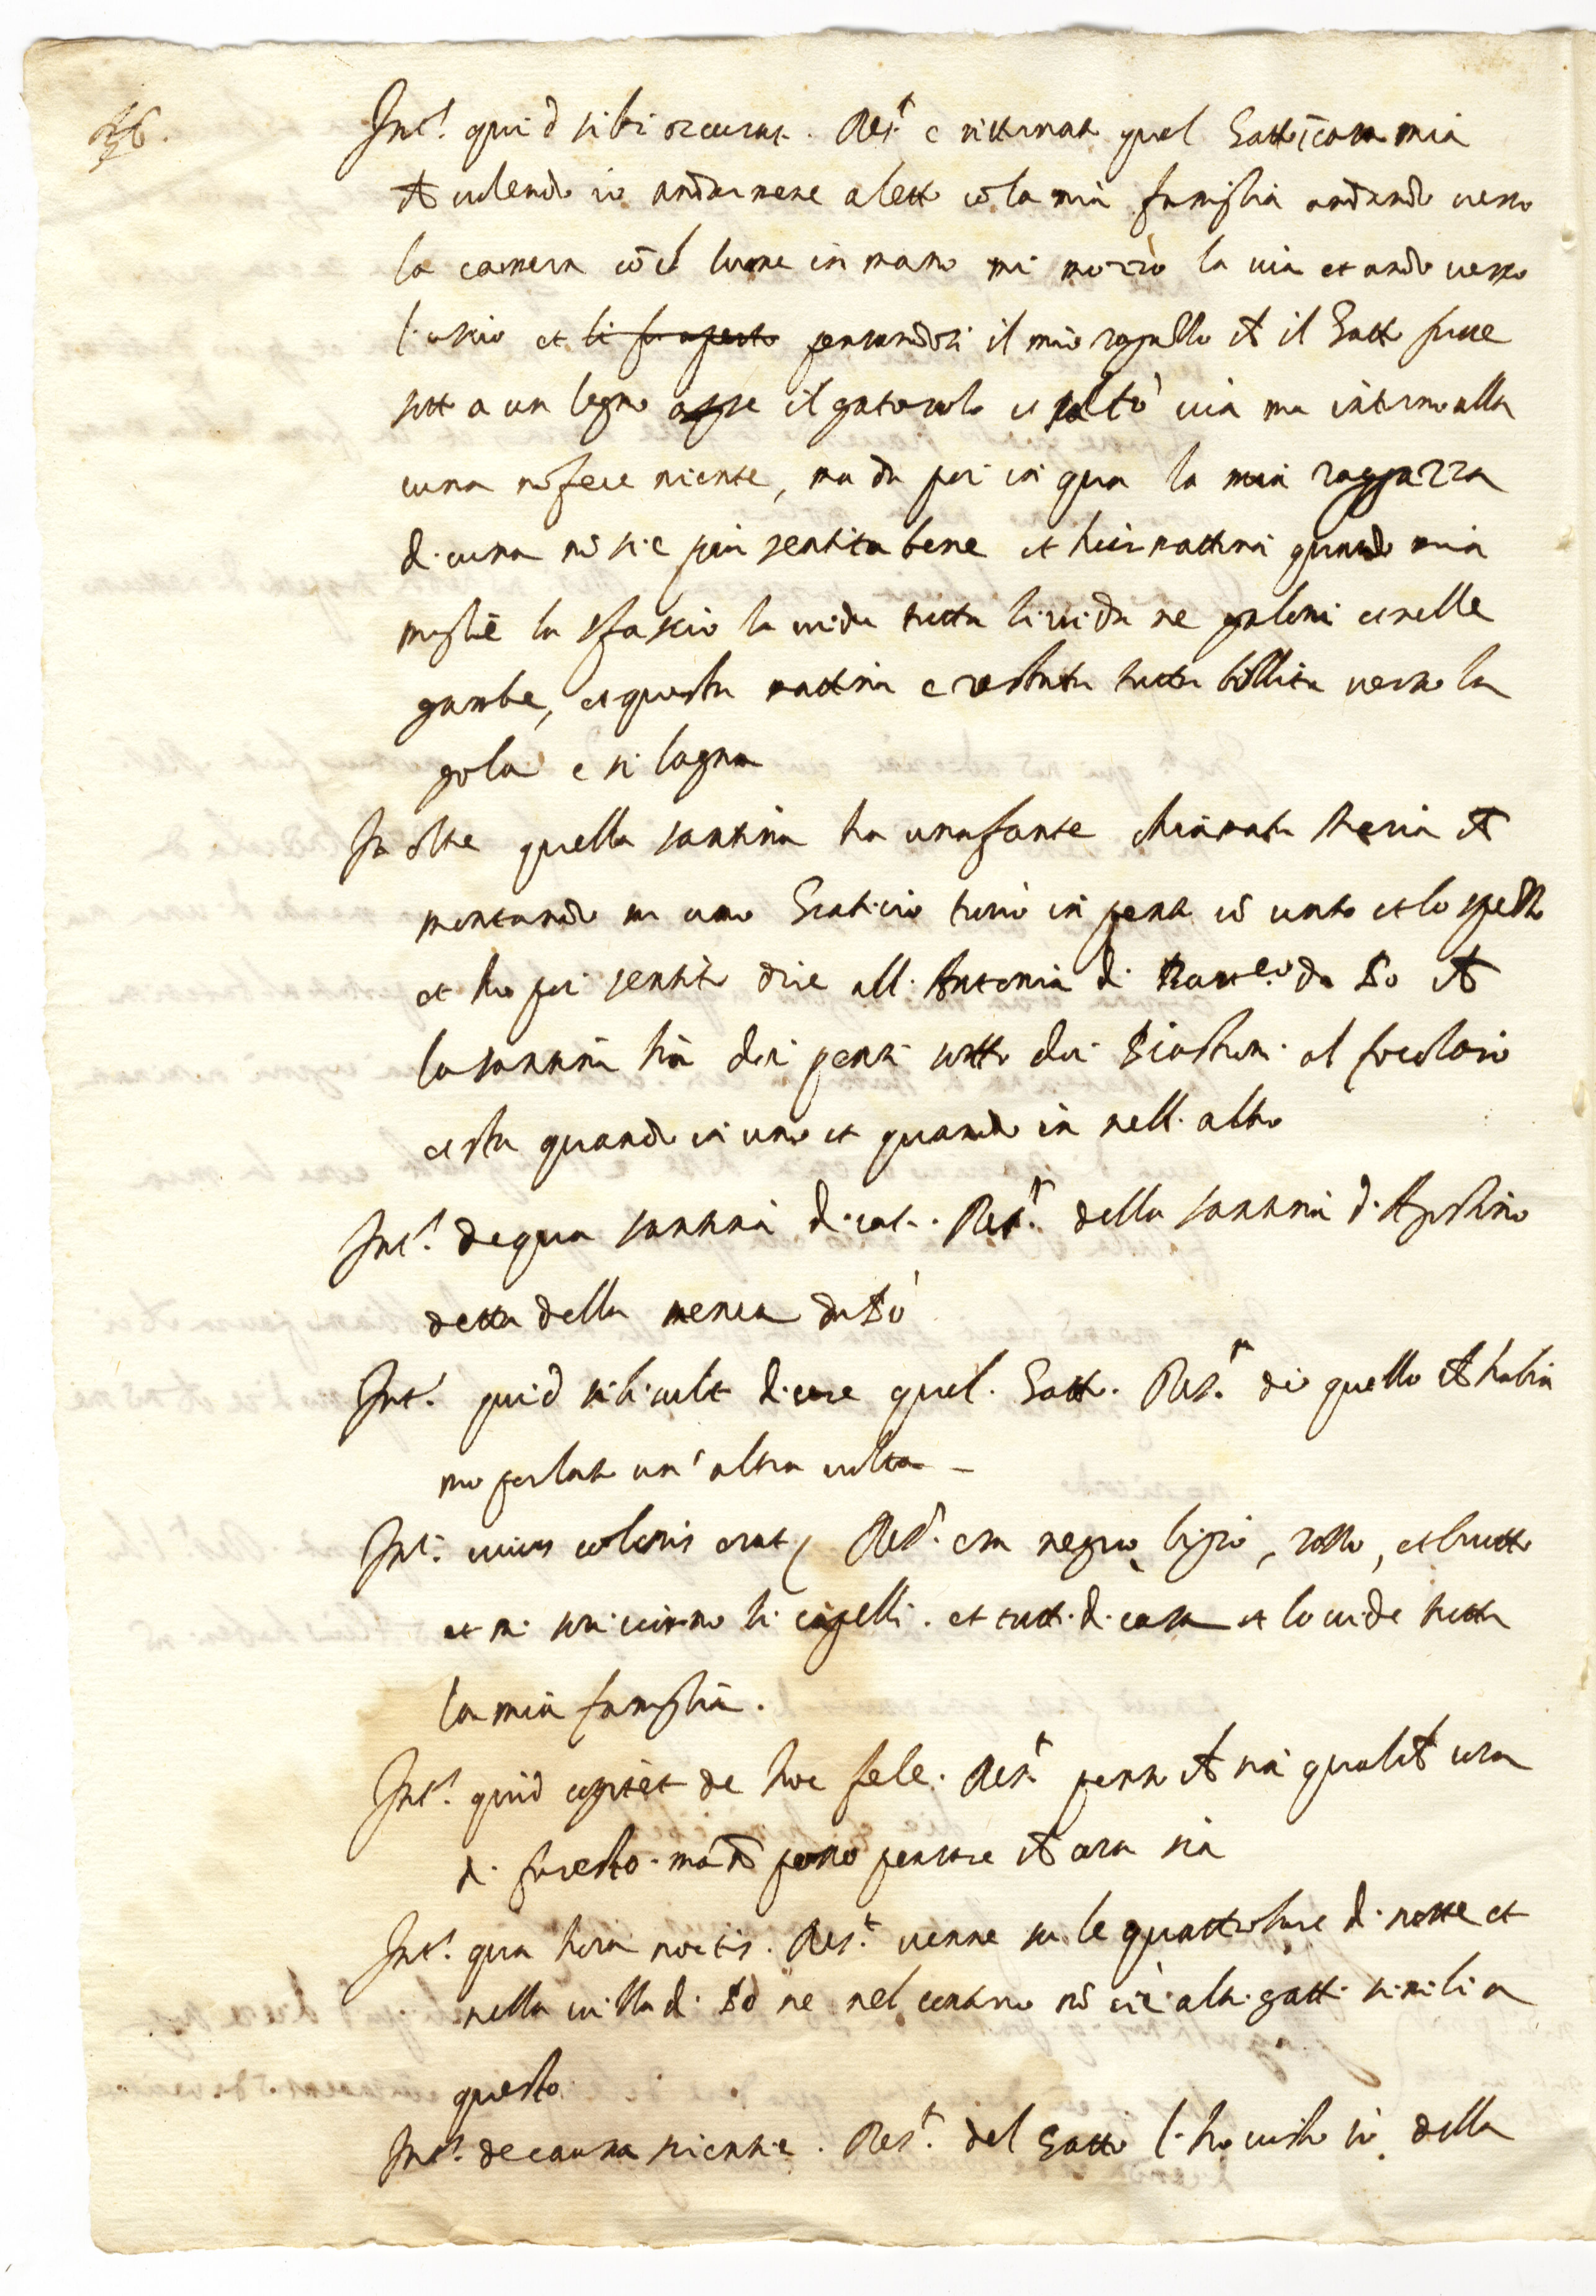 36.
Int.s quid sibi occurat. Res.t è ritornato quel Gatto ī casa mia
ch volendo io andarmene a letto cō la mia famiglia andando verso
la camera cō il lume in mano mi mozzò la via et andò verso
l'uscio et li fu aperto pensandosi il mio ragazzo ch il Gatto fusse
sott a un legno il gatorolo et saltò via ma intorno alla
cuna nō fece niente, ma da poi in qua la mia ragazza
di cuna nō si è più sentita bene et hier mattina quando mia
moglie la sfasciò la vidde tutta livida ne galoni et nelle
gambe, et questa mattina è restata tutta bollita verso la
gola e si lagna
In oltre quella santina ha una fante chiamata ch
montando su uno Graticio trovò un penta cō unto et lo
et ho poi sentito dire all'Antonia di da Sò ch
la santina hà doi penti sotto doi al focolaro
et sta quando in uno et quando in nell'altro
Int.s de qua santina dicat. Res.t della santina d'Agostino
detta della menca da Sò
Int.s quid sibi vult dicere quel Gatto. Res.t di quello ch habia
mo parlato un'altra volta
Int.s cuius coloris erat, Res.t era negro, bigio, rosso, et brutto
et mi li capelli. et tutti di casa et lo vide tutta
la mia famiglia.
Int.s quid cogitet de hoc fele. Res.t penso ch sia qualch cosa
di funesto. ma nō posso pensare ch cosa sia
Int.s qua hora noctis. Res.t venne su le quattro hore di notte et
nella villa di Sò ne nel contorno nō ci è altri gatti simili a
questo
Int.s de causa scientiæ. Res.t del Gatto l'ho visto io della